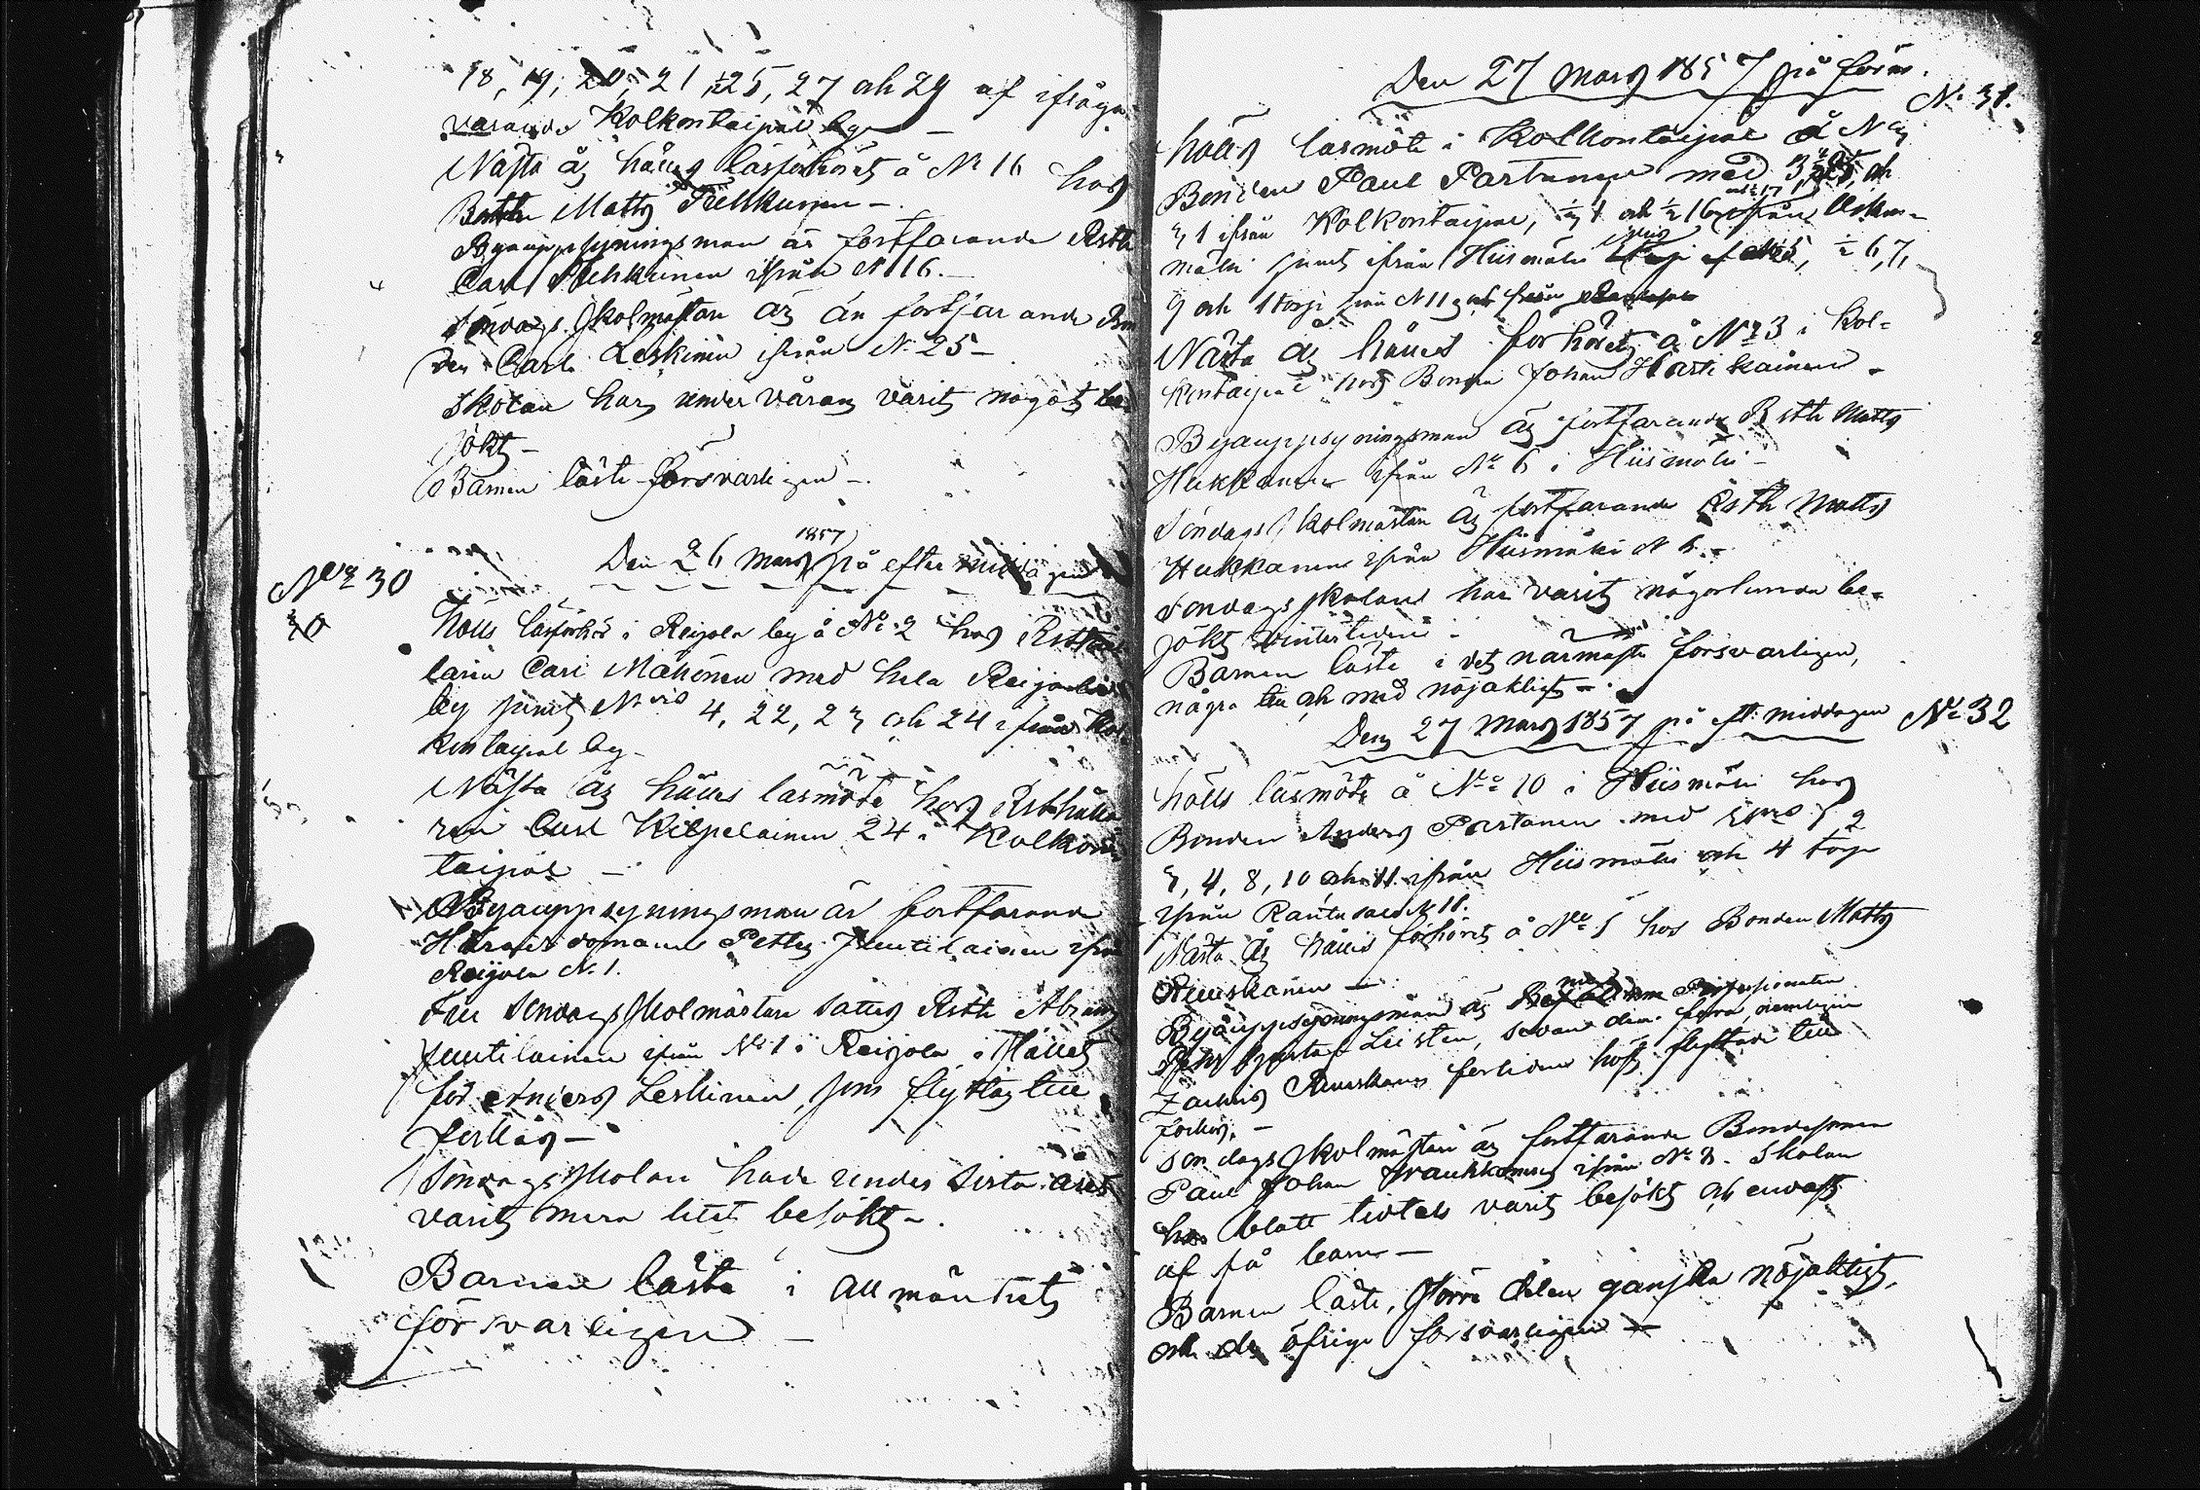 18, 19, 20, 21, ½25, 27 och 29 af ifråga
varande Kolkontaipal by
Nästa år hålles läsförhöret å N 16 hos
Matts Pehkunen –
Byauppsyningsman är fortfarande Rsth
Carl Pehkunen ifrån N 16. –
Söndags Skolmästare är än fortfarande Bon
den Carl Leskinen ifrån N. 25 –
Skolan har under våren varit något be
sökt –
Barnen läste försvarligen –
1857
Den 26 Mars på efter middagen
No 30
Hölls läsförhör i Reijola by å No 2 hos Rusthål
laren Carl Mähönen med hela Reijola
by samt Nris 4, 22, 23 och 24 ifrån Kol
kontaipal by –
Nästa år hålles läsmöte hos Rsthålla
ren Carl Kilpelainen 24 i Kolkon
taipal –
Byauppsyningsman är fortfarande
Häradsdomaren Petter Juutilainen ifrån
Reijola N. 1.
Till Söndags Skolmästare sattes Rsth Abram
Juutilainen ifrån No 1 i Reijola i stället
för Anders Leskinen, som flyttat till
–
Söndags Skolan hade under sista året
varit mera litet besökt –
Barnen läste i allmänhet
försvarligen –
Den 27 Mars 1857 på förm.
N. 31.
Hölls läsmöte i Kolkontaipal å N
Bonden Paul Partanen med
ifrån Kolkontaipal, ½ 1 och ½ 16 ifrån
mäki samt ifrån Hiismäki ½ 6, 7,
9 och 1 torp från N 11
Nästa år hålles förhöret å No 3 i Kol-
kontaipal hos Bonden Johan Hartikainen –
Byauppsyningsman är fortfarande Rsth Matts
Hukkanen ifrån No 6 i Hiismäki –
Söndags Skolmästare är fortfarande Rsth Matts
Hukkanen ifrån Hiismäki N 6. –
Söndags Skolan har varit någorlunda be-
sökt vintertiden –
Barnen läste i det närmaste försvarligen,
några till och med nöjaktigt –
Den 27 Mars 1857 på eft. middagen
No 32
Hölls läsmöte å No 10 i Hiismäki hos
Bonden Anders Partanen med
3, 4, 8, 10 och 11 ifrån Hiismäki och 4 torp
ifrån Rantasalo N 11.
Nästa år hålles förhöret å No 5 hos Bonden Matts
Reuskanen –
Byauppsyningsman är
Gustaf Listen, sedan den förra, nemligen
Zachris Reuskanen förliden höst flyttade till
–
Söndags Skolmästare är fortfarande Bondesonen
Paul Johan ifrån No 8. Skolan
har blott tidtals varit besökt och endast
af få barn –
Barnen läste, större delen ganska nöjaktigt,
och de öfriga försvarligen –